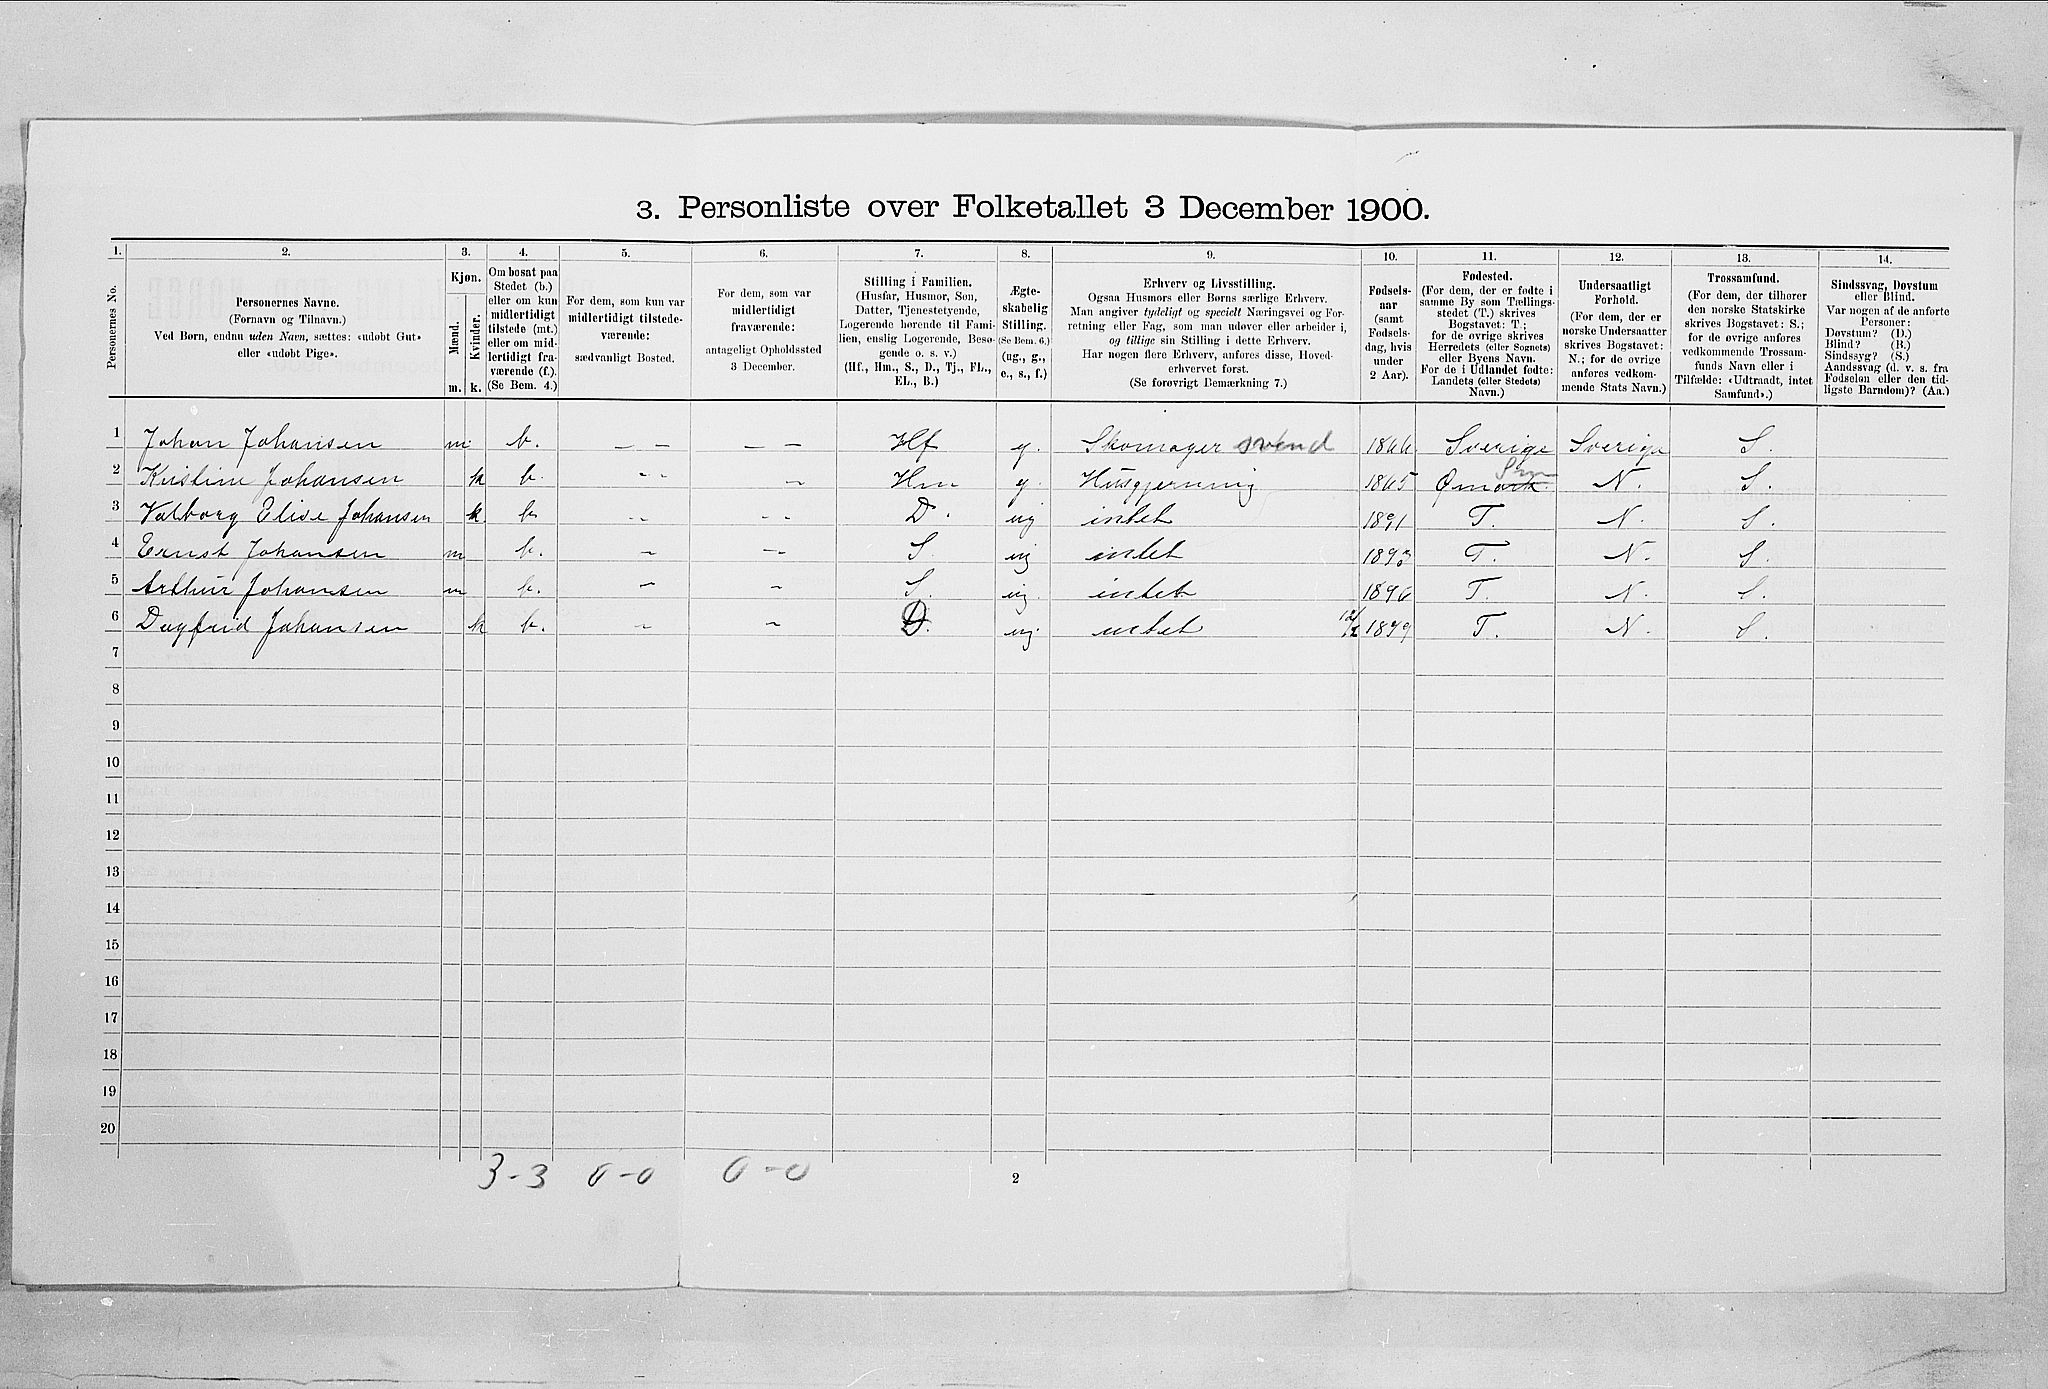 3. Personliste over Folketallet 3 December 1900.
1. 2. 3. 4. 5. 6. 7. 8. 9. 10. 11. 12. 13. 14.
Personernes No.
Personernes Navne.
(Fornavn og Tilnavn.)
Ved Børn, endnu uden Navn, sættes: «udøbt Gut»
eller «udøbt Pige».
Kjøn.
Mænd.
Kvinder.
m. k.
Om bosat paa
Stedet (b.)
eller om kun
midlertidigt
tilstede (mt.)
eller om mid-
lertidigt fra-
værende (f.).
(Se Bem. 4.)
For dem, som kun var
midlertidigt tilstede-
værende:
sædvanligt Bosted.
For dem, som var
midlertidigt
fraværende:
antageligt Opholdssted
3 December.
Stilling i Familien.
(Husfar, Husmor, Søn,
Datter, Tjenestetyende,
Logerende hørende til Fami-
lien, enslig Logerende, Besø-
gende o. s. v.)
(Hf., Hm., S., D., Tj., FL.,
EL., B.)
Ægte-
skabelig
Stilling.
(Se Bem. 6.)
(ug., g.,
e., s., f.)
Erhverv og Livsstilling.
Ogsaa Husmors eller Børns særlige Erhverv.
Man angiver tydeligt og specielt Næringsvei og For-
retning eller Fag, som man udøver eller arbeider i,
og tillige sin Stilling i dette Erhverv.
Har nogen flere Erhverv, anføres disse, Hoved-
erhvervet først.
(Se forøvrigt Bemærkning 7.)
Fødsels-
aar
(samt
Fødsels-
dag, hvis
under
2 Aar).
Fødested.
(For dem, der er fødte i
samme By som Tællings-
stedet (T.) skrives
Bogstavet: T.;
for de øvrige skrives
Herredets (eller Sognets)
eller Byens Navn.
For de i Udlandet fødte:
Landets (eller Stedets)
Navn.)
Undersaatligt
Forhold.
(For dem, der er
norske Undersaatter
skrives Bogstavet:
N.; for de øvrige
anføres vedkom-
mende Stats Navn.)
Trossamfund.
(For dem, der tilhører
den norske Statskirke
skrives Bogstavet: S.;
for de øvrige anføres
vedkommende Trossam-
funds Navn eller i
Tilfælde: «Udtraadt, intet
Samfund».)
Sindssvag, Døvstum
eller Blind.
Var nogen af de anførte
Personer:
Døvstum? (D.)
Blind? (B.)
Sindssyg? (S.)
Aandssvag (d. v. s. fra
Fødselen eller den tid-
ligste Barndom)? (Aa.)
1 Johan Johansen m. b. — — — — Hf g. Skomager svend 1866 Sverige Sverige S.
2 Kristine Johansen k b. - - - Hm g. Husgjerning 1865 Ømark. N. S.
3 Valborg Elise Johansen k b - - - - D. ug intet 1891 T. N. S.
4 Ernst Johansen m b. - - - S. ug intet 1893 T. N. S.
5 Arthur Johansen m b. - - S. ug. intet 1896 T. N. S.
6 Dagfrid Johansen k b. - - D. ug. intet 12/2 1899 T. N. S.
7
8
9
10
11
12
13
14
15
16
17
18
19
20
3-3 0-0 0-0 2